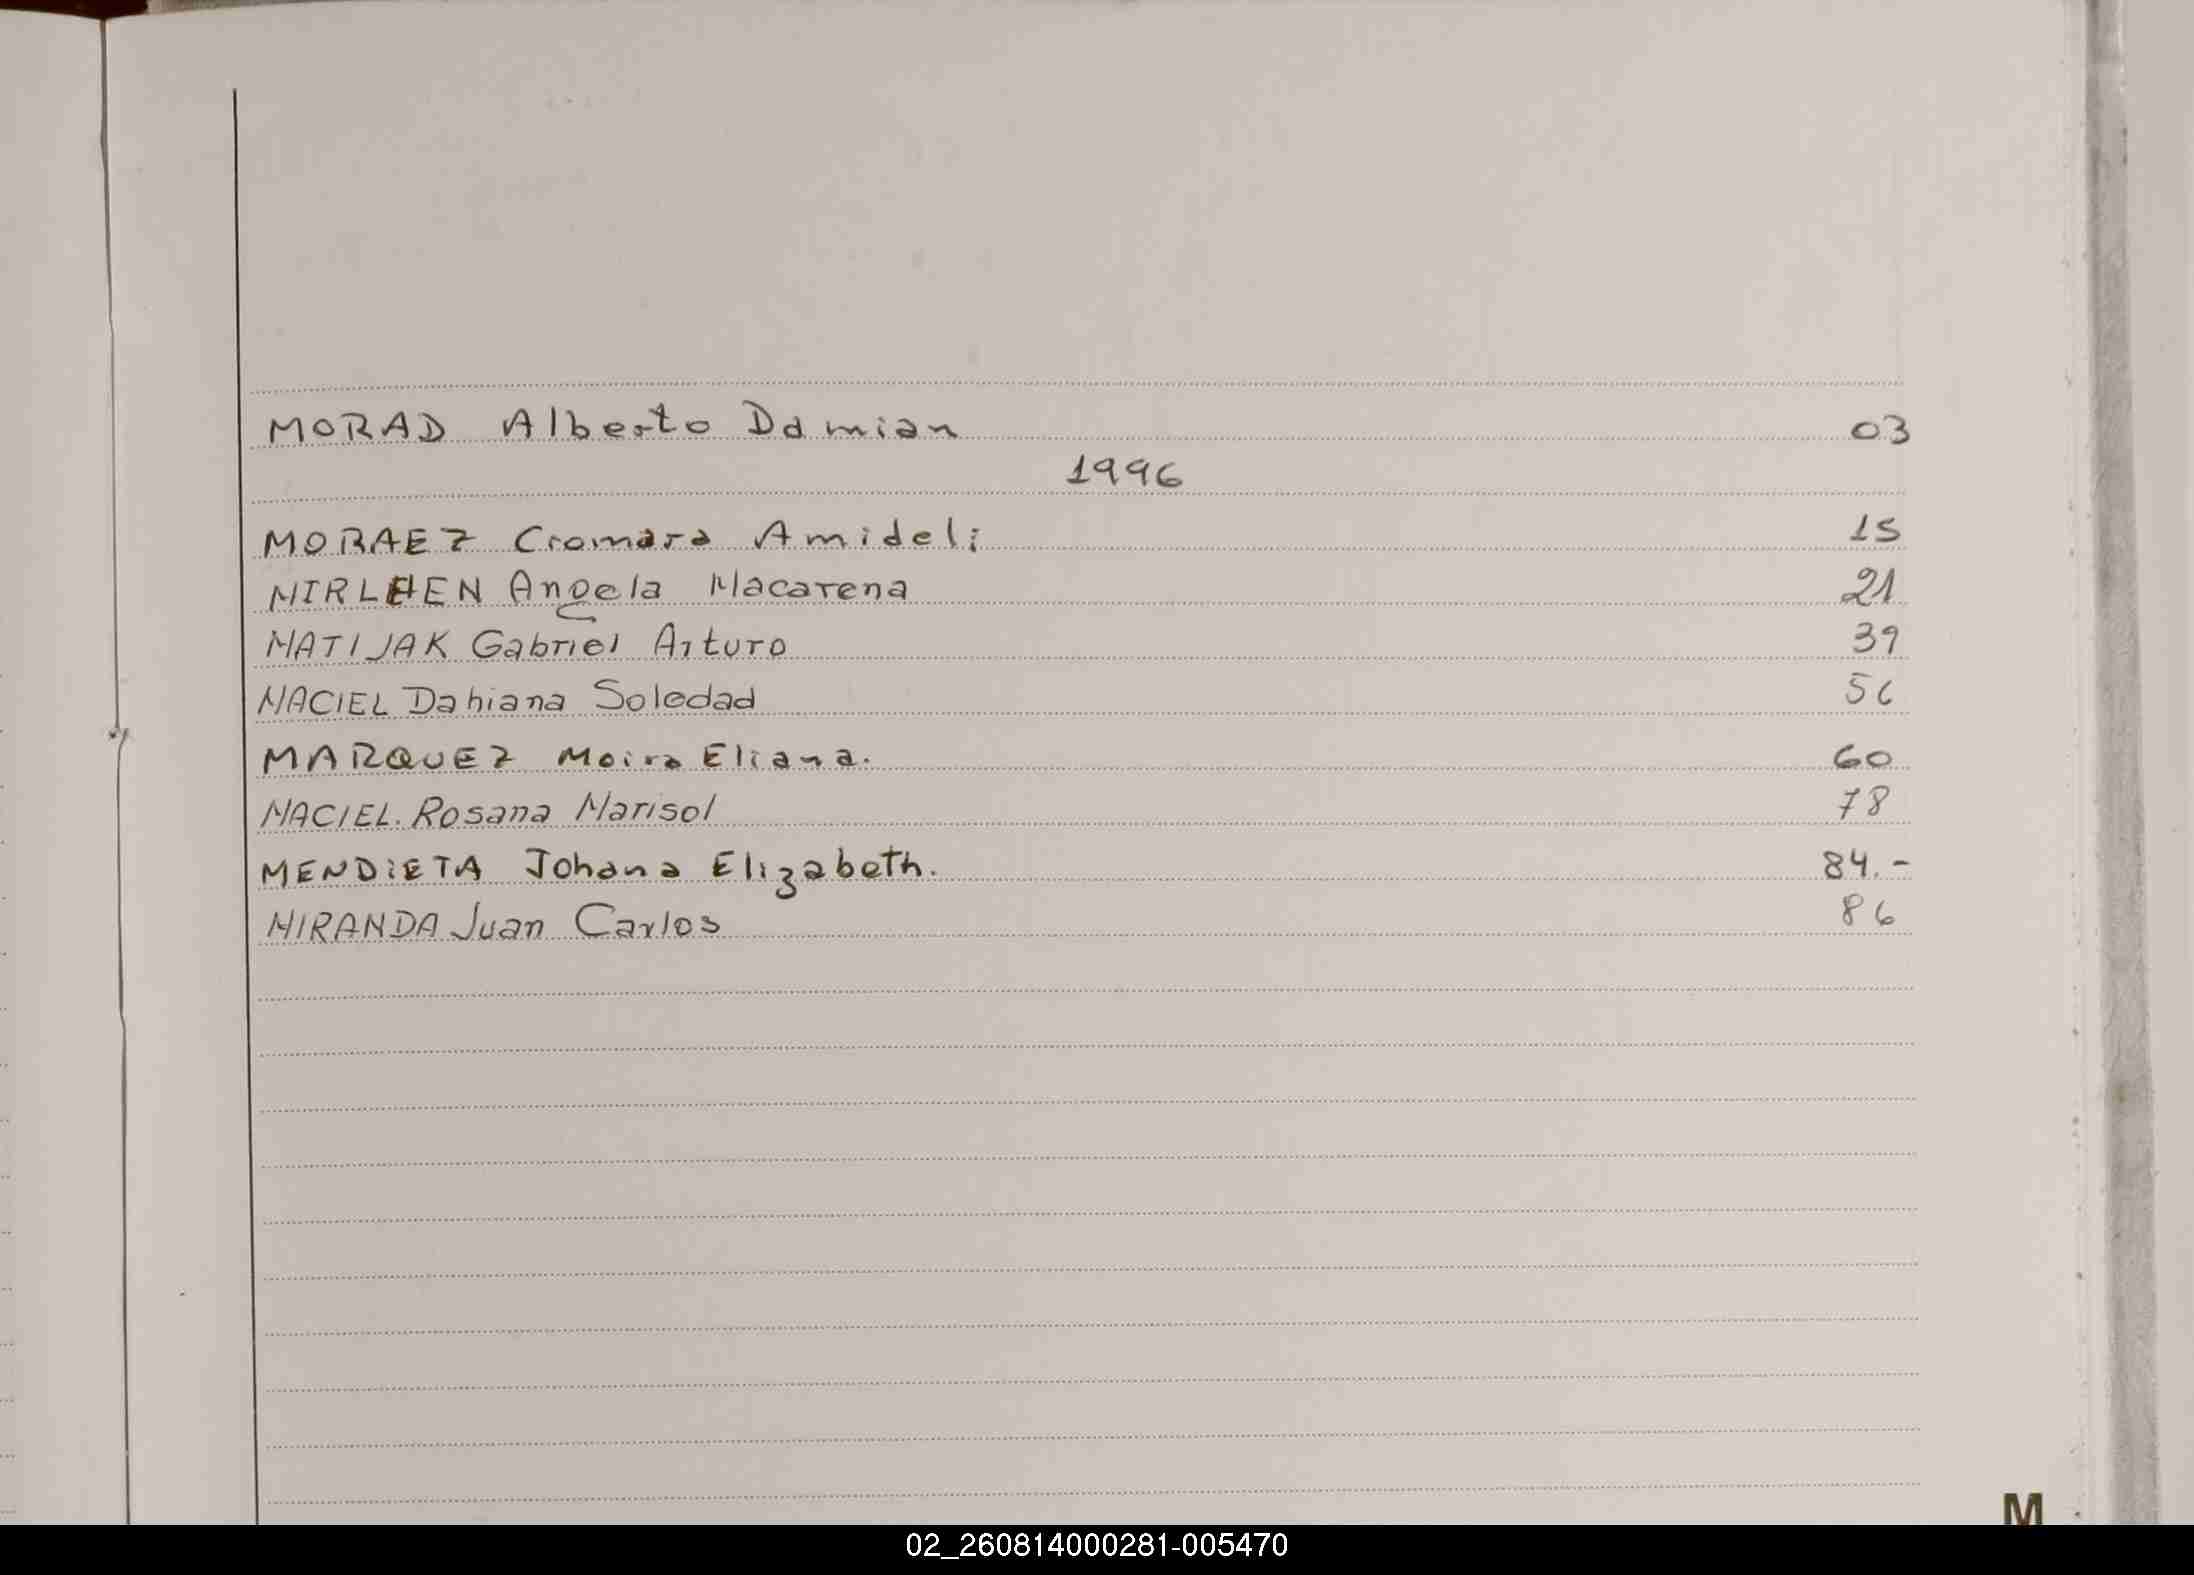 MORAD Alberto Damian 03
1996
MORAEZ Cromara Amideli 15
MIRLHEN Angela Macarena 21
MATIJAK Gabriel Arturo 39
MACIEL Dahiana Soledad 56
MARQUEZ Moira Eliana. 60
MACIEL. Rosana Marisol 78
MENDiETA Johana Elizabeth. 84.-
MIRANDA Juan Carlos 86
M
02_260814000281-005470